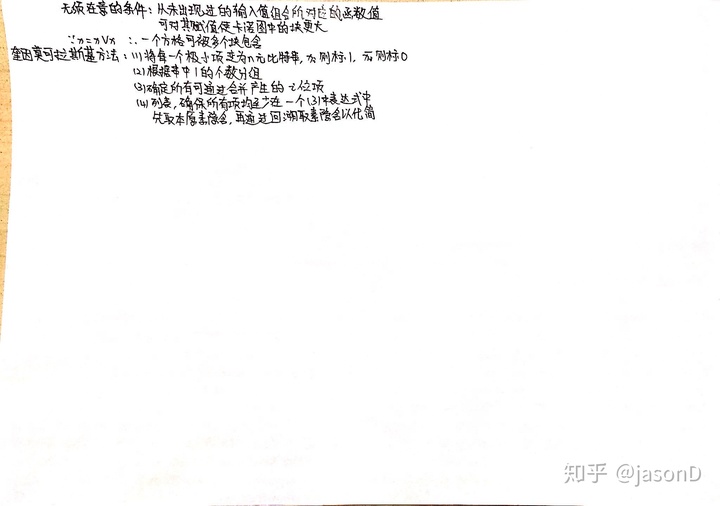 无须在意的条件：从未出现过的输入值组合所对应的函数值
可对其赋值使卡诺图中的块更大
∵x=x∨x ∴一个方格可被多个块包含
奎因莫可拉斯基方法：(1)将每一个极小项变为n元比特串，xᵢ则标1，x̄ᵢ则标0
(2)根据串中1的个数分组
(3)确定所有可通过合并产生的i位项
(4)列表，确保所有项均至少在一个(3)中表达式中
先取本原素隐含，再通过回溯取素隐含以化简
知乎 @jasonD